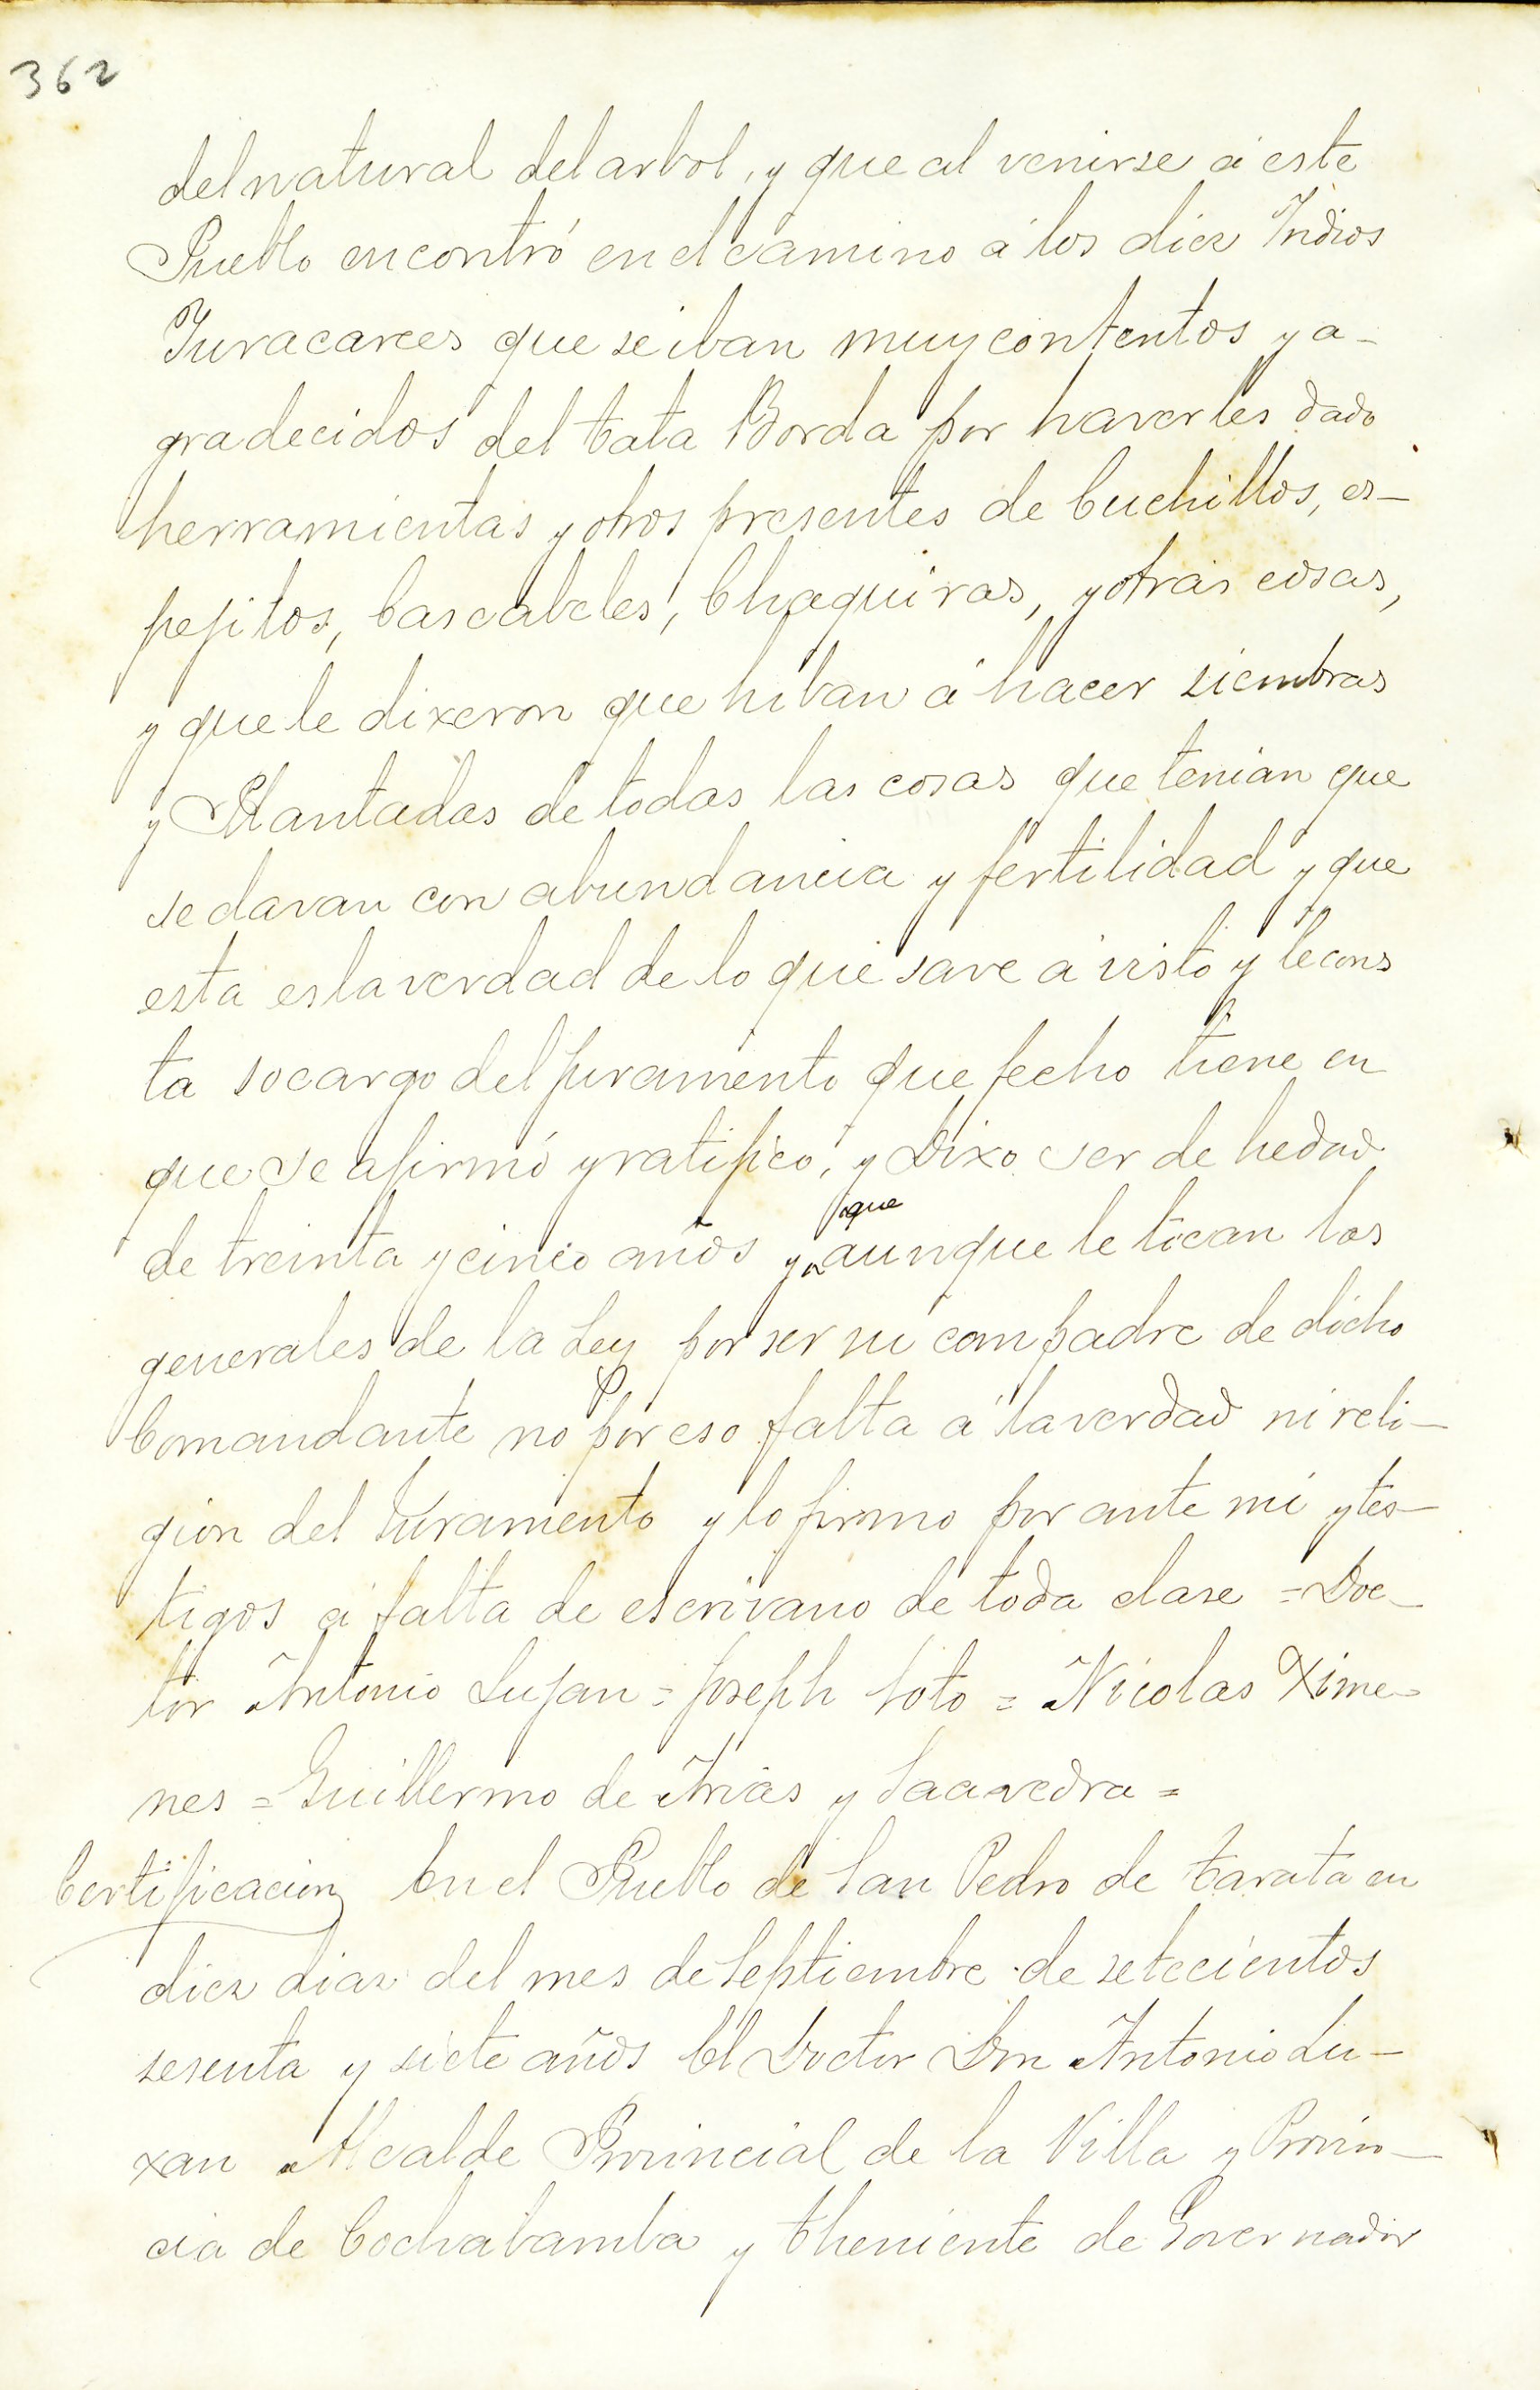 362
del natural del arbol, y que al venirse á este
Pueblo encontró en el camino á los diez Indios
Yuracarees que se iban muy contentos y a-
gradecidos del tata Borda por haverles dado
herramientas y otros presentes de Cuchillos, es-
pejitos, Cascabeles, Chaquiras, y otras cosas,
y que le dixeron que hiban á hacer siembras
y Plantadas de todas las cosas que tenian que
se davan con abundancia y fertilidad y que
esta es la verdad de lo que save á visto y le cons
ta so cargo del juramento que fecho tiene en
que se afirmó y ratificó, y Dixo ser de hedad
de treinta y cinco años y que aunque le tocan las
generales de la Ley por ser su compadre de dicho
Comandante no por eso falta á la verdad ni reli-
gion del Juramento y lo firmo por ante mi y tes-
tigos á falta de escrivano de toda clase = Doc-
tor Antonio Lujan = Joseph Soto = Nicolas Xime-
nes = Guillermo de Arias y Saavedra =
Certificacion En el Pueblo de San Pedro de Tarata en
diez dias del mes de Septiembre de setecientos
sesenta y siete años El Doctor Don Antonio Lu-
xan Alcalde Provincial de la Villa y Provin-
cia de Cochabamba y Theniente de Governador